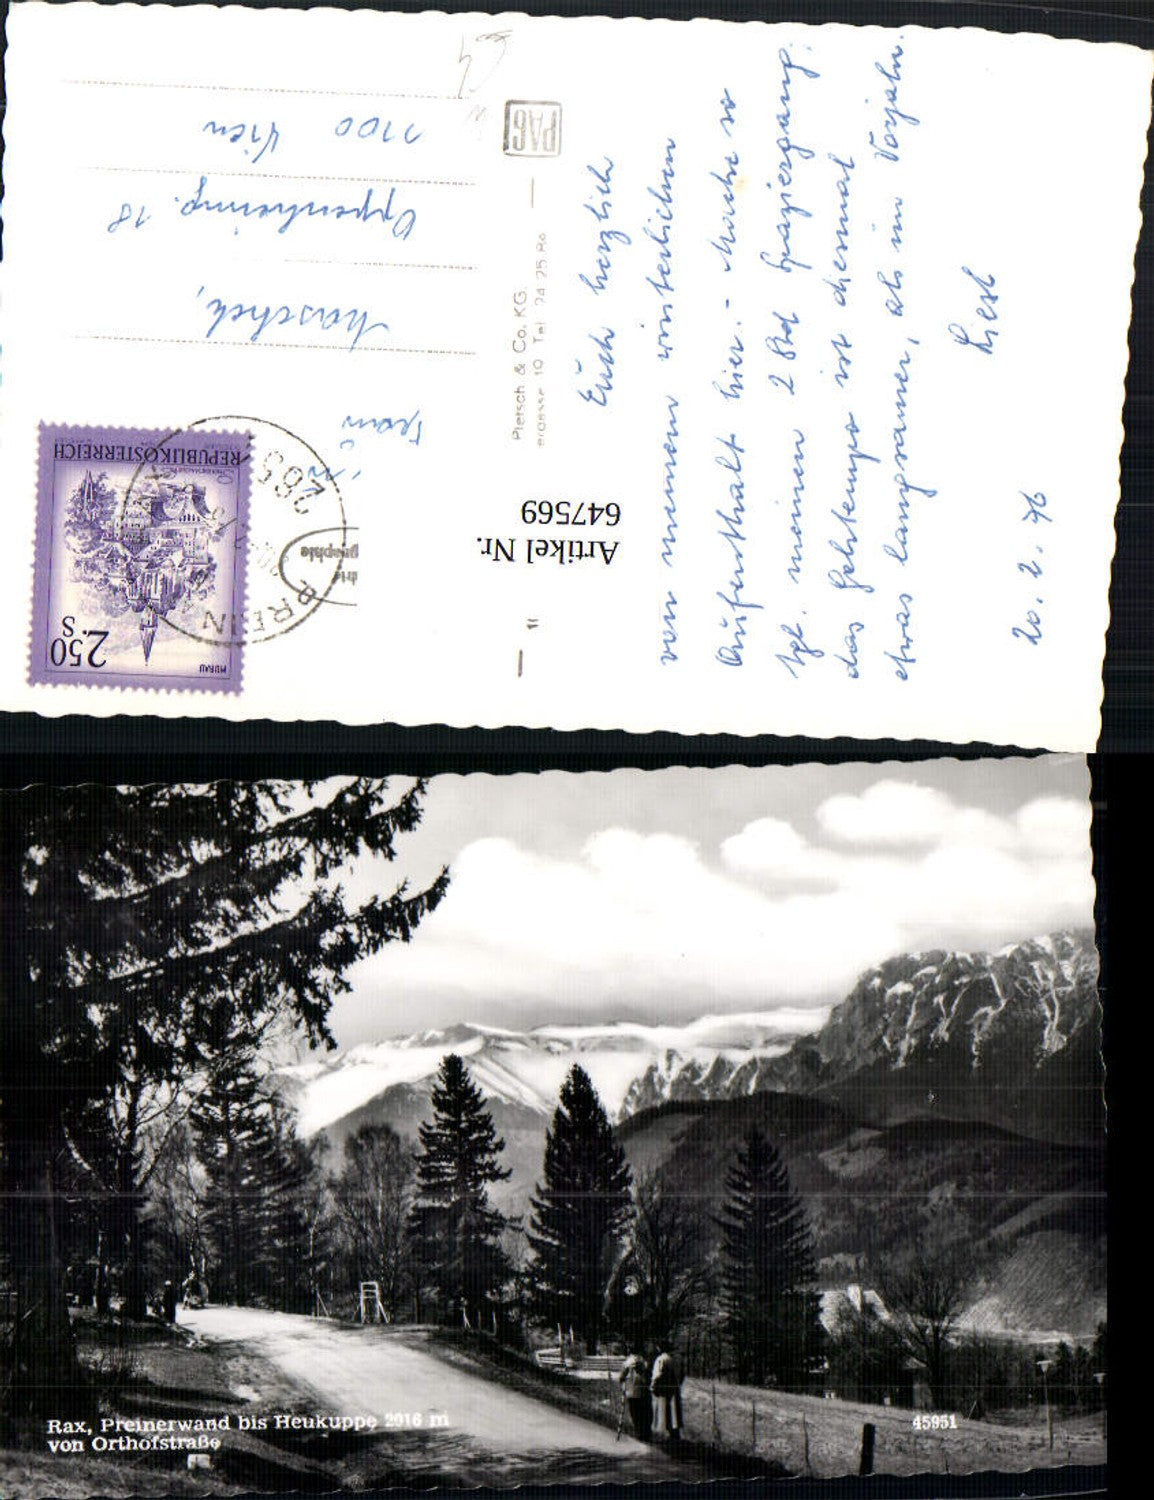 Euch herzlich
von meinem winterlichen
Aufenthalt hier. - Mache so
tgl. meinen 2 Std Spaziergang;
das Gehtempo ist diesmal
etwas langsamer, als im Vorjahr.
Liesl
20. 2. 76
Pietsch & Co. KG.
PAG
Artikel Nr.
647569
2.50
S
MURAU
REPUBLIK ÖSTERREICH
PREIN
265
Maschek,
Oppenheimg. 18
1100 Wien
Rax, Preinerwand bis Heukuppe 2016 m
von Orthofstraße
45951